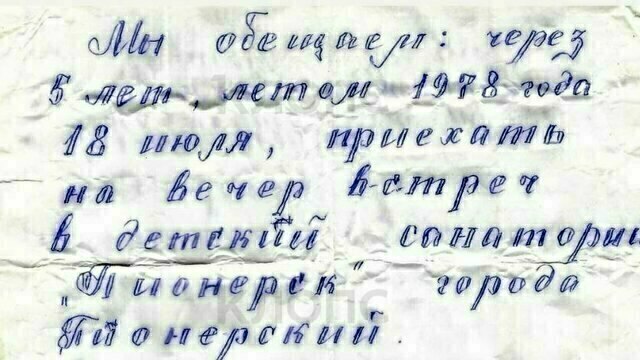 Мы обещаем: через
5 лет, летом 1978 года
18 июля, приехать
на вечер встреч
в детский санаторий
"Пионерск" города
Пионерский.
КЛОПС